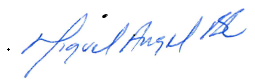 Miguel Angel